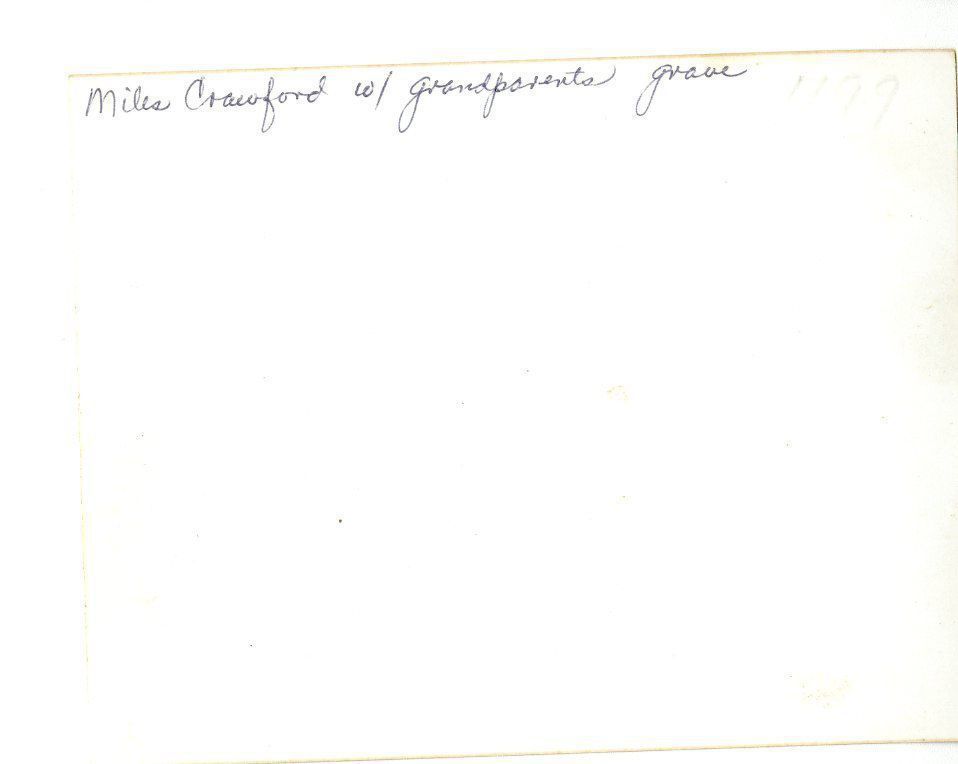 Miles Crawford w/ grandparents grave